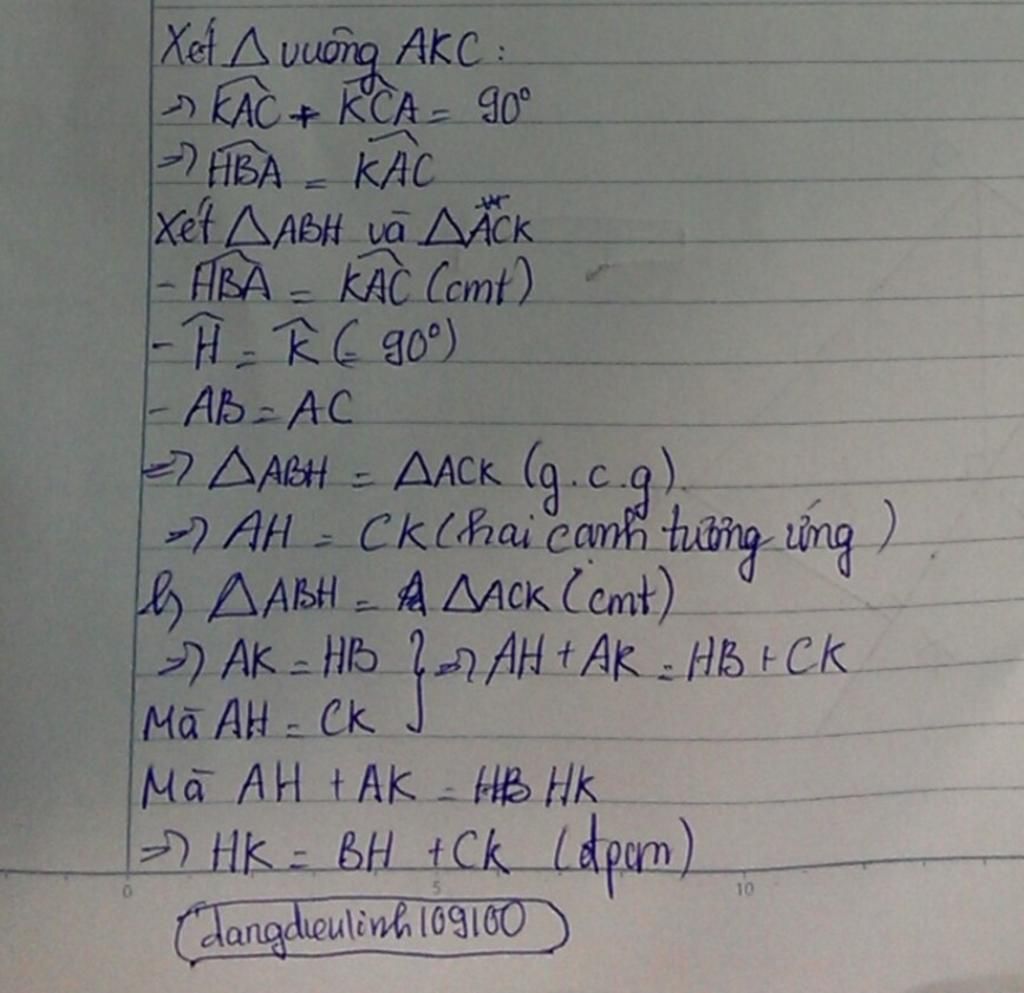 Xét Δ vuông AKC :
=> KAC + KCA = 90°
=> HBA = KAC
Xét ΔABH và ΔACK
- HBA = KAC (cmt)
- H = K (= 90°)
- AB = AC
=> ΔABH = ΔACK (g.c.g)
=> AH = CK (hai cạnh tương ứng )
b) ΔABH = ΔACK (cmt)
=> AK = HB } => AH + AK = HB + CK
Mà AH = CK
Mà AH + AK = HK
=> HK = BH + CK (đpcm)
0 5 10
dangdieulinh109100